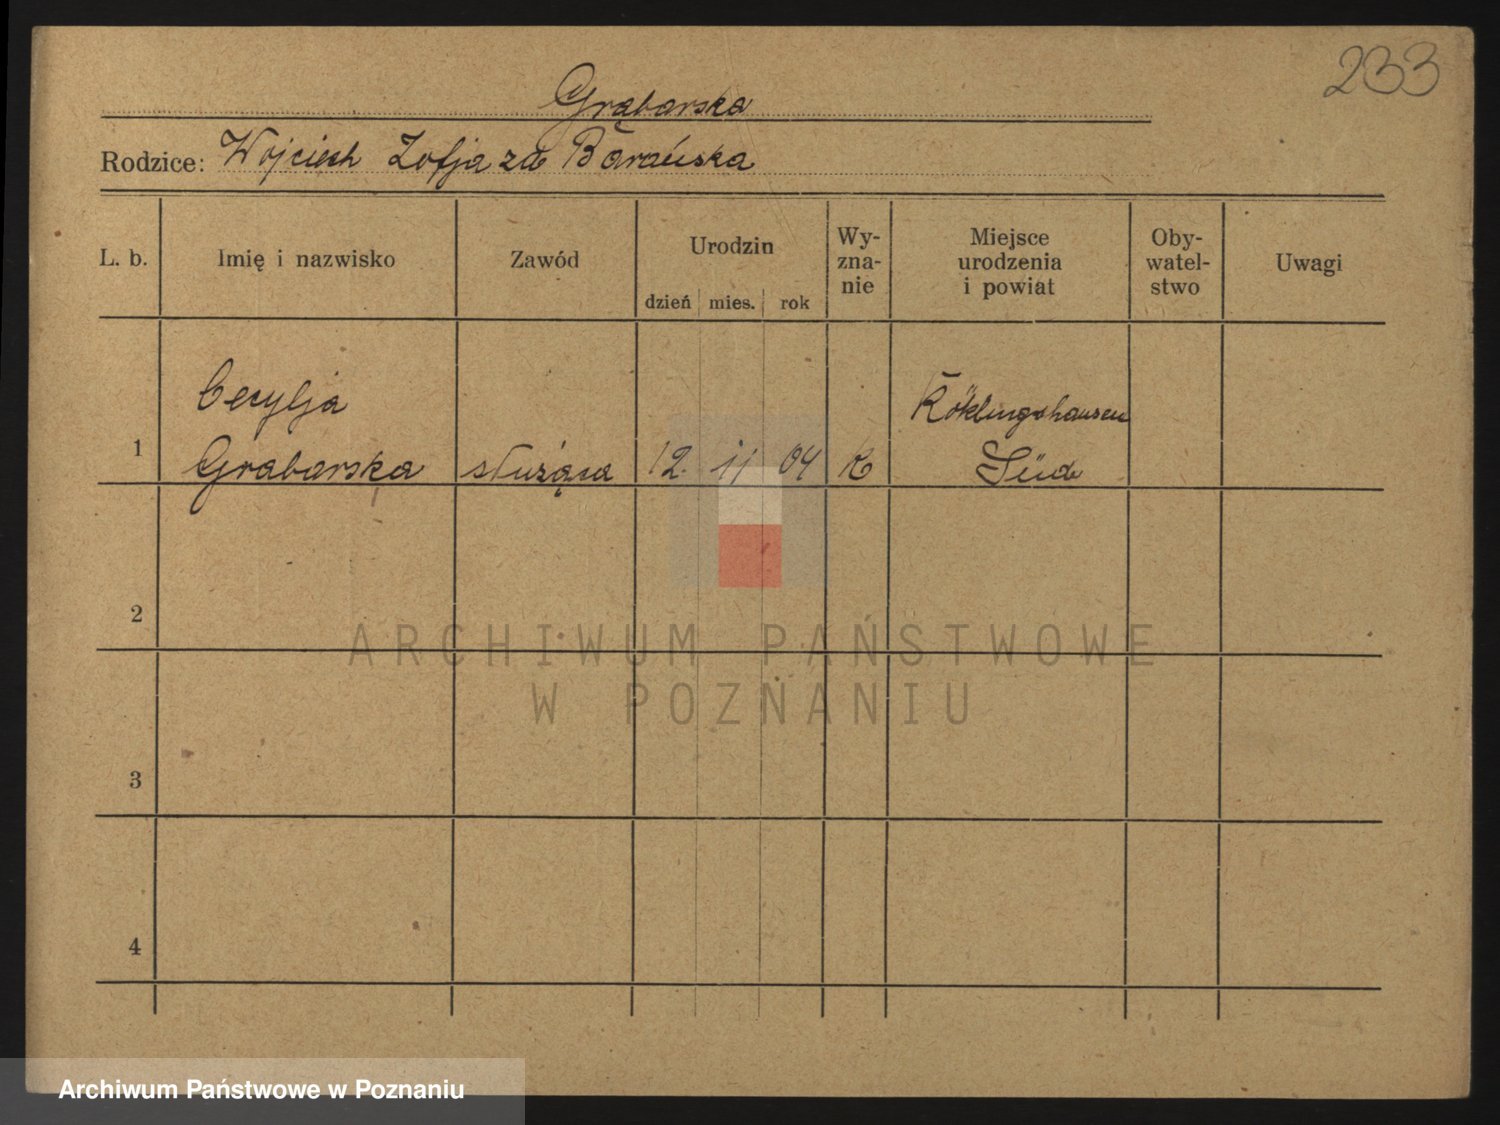 233
Grąbarska
Rodzice: Wojciech Zofja zd Barańska
L. b. Imię i nazwisko Zawód Urodzin dzień mies. rok Wy-zna-nie Miejsce urodzenia i powiat Oby-watel-stwo Uwagi
1 Cecylja Grabarska służąca 12. 11 04 K Röklingshausen Süd
2
ARCHIWUM PAŃSTWOWE
W POZNANIU
3
4
Archiwum Państwowe w Poznaniu